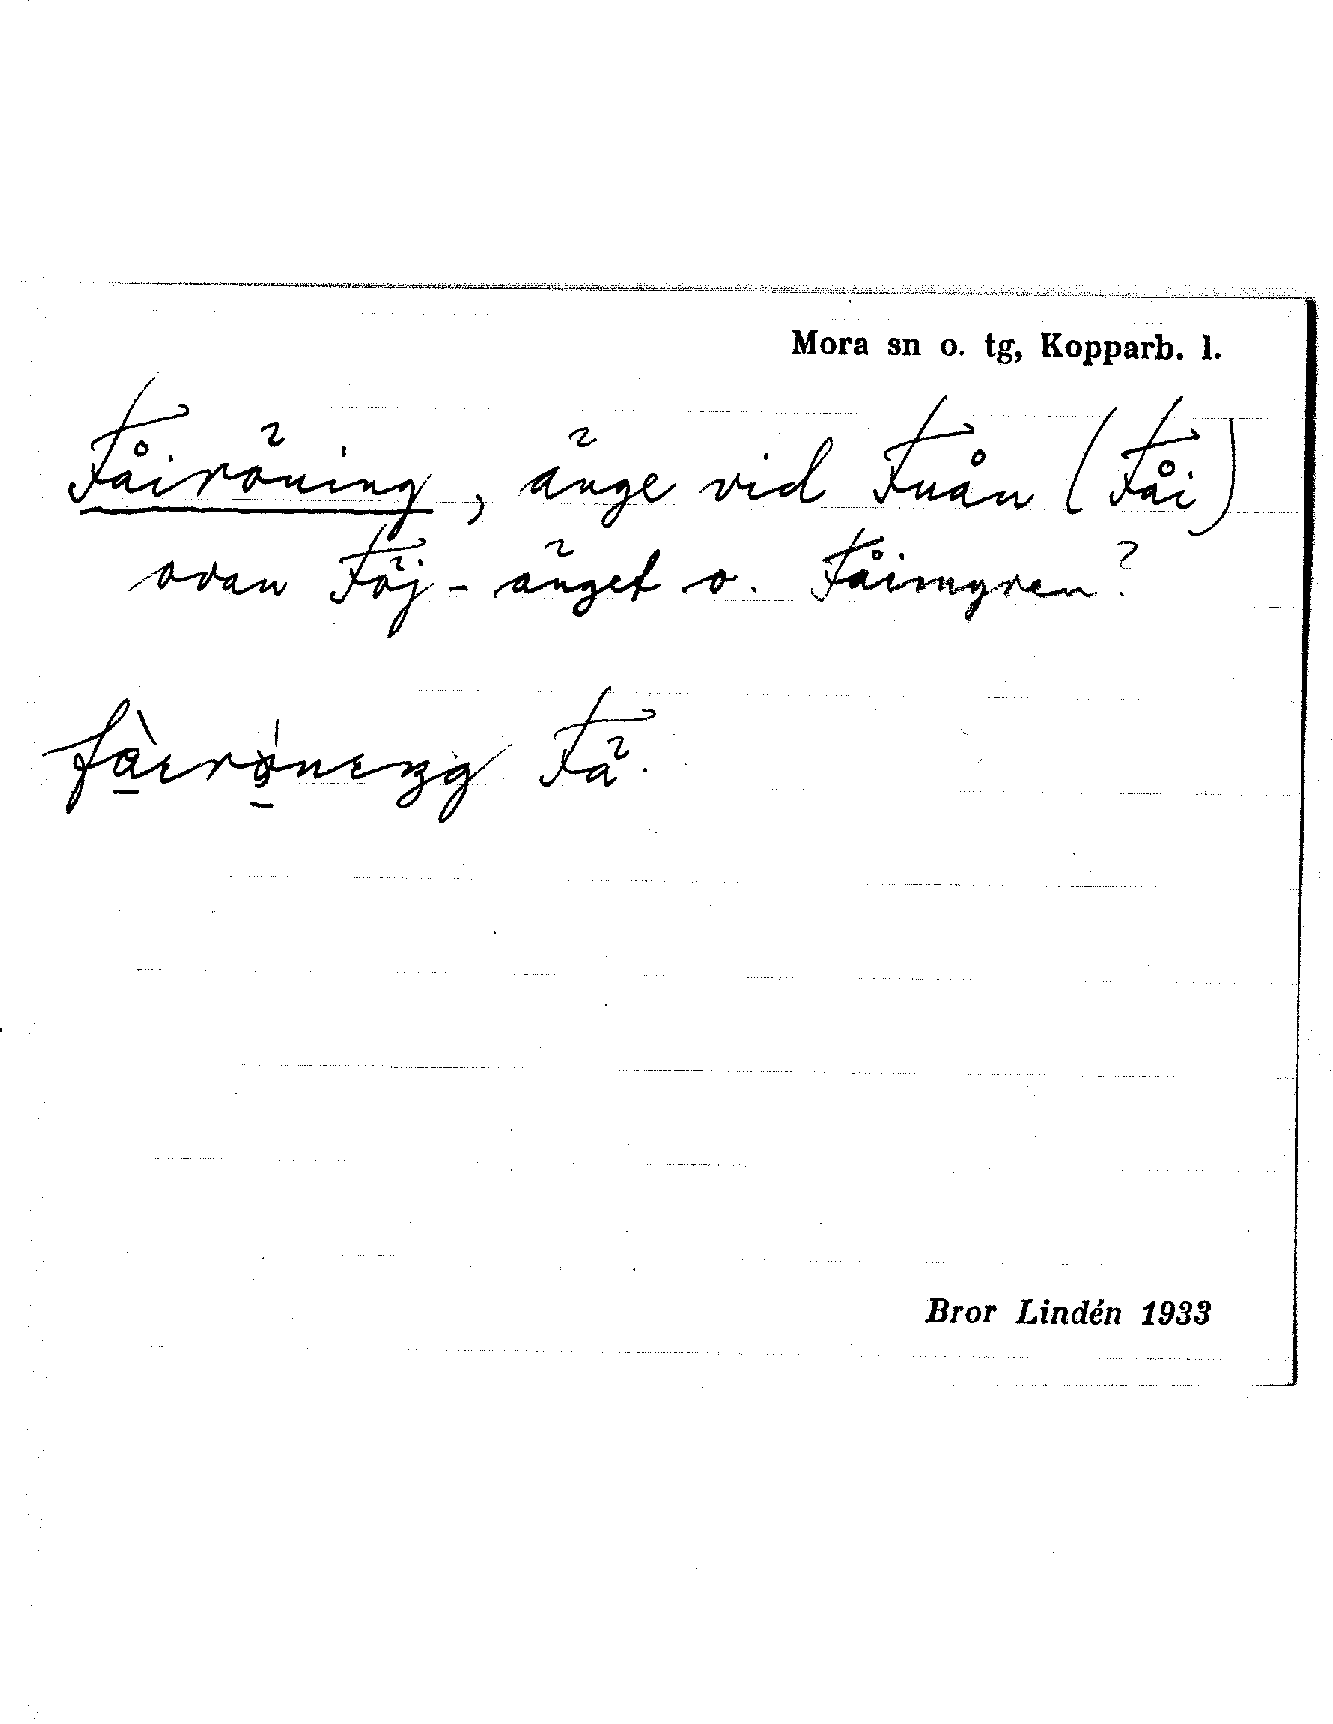 Mora sn o. tg, Kopparb. l.
Fåiröning, änge vid Fuån (Fåi)
ovan Föj-änget o. Fåimyren?
Fä.
Bror Lindén 1933